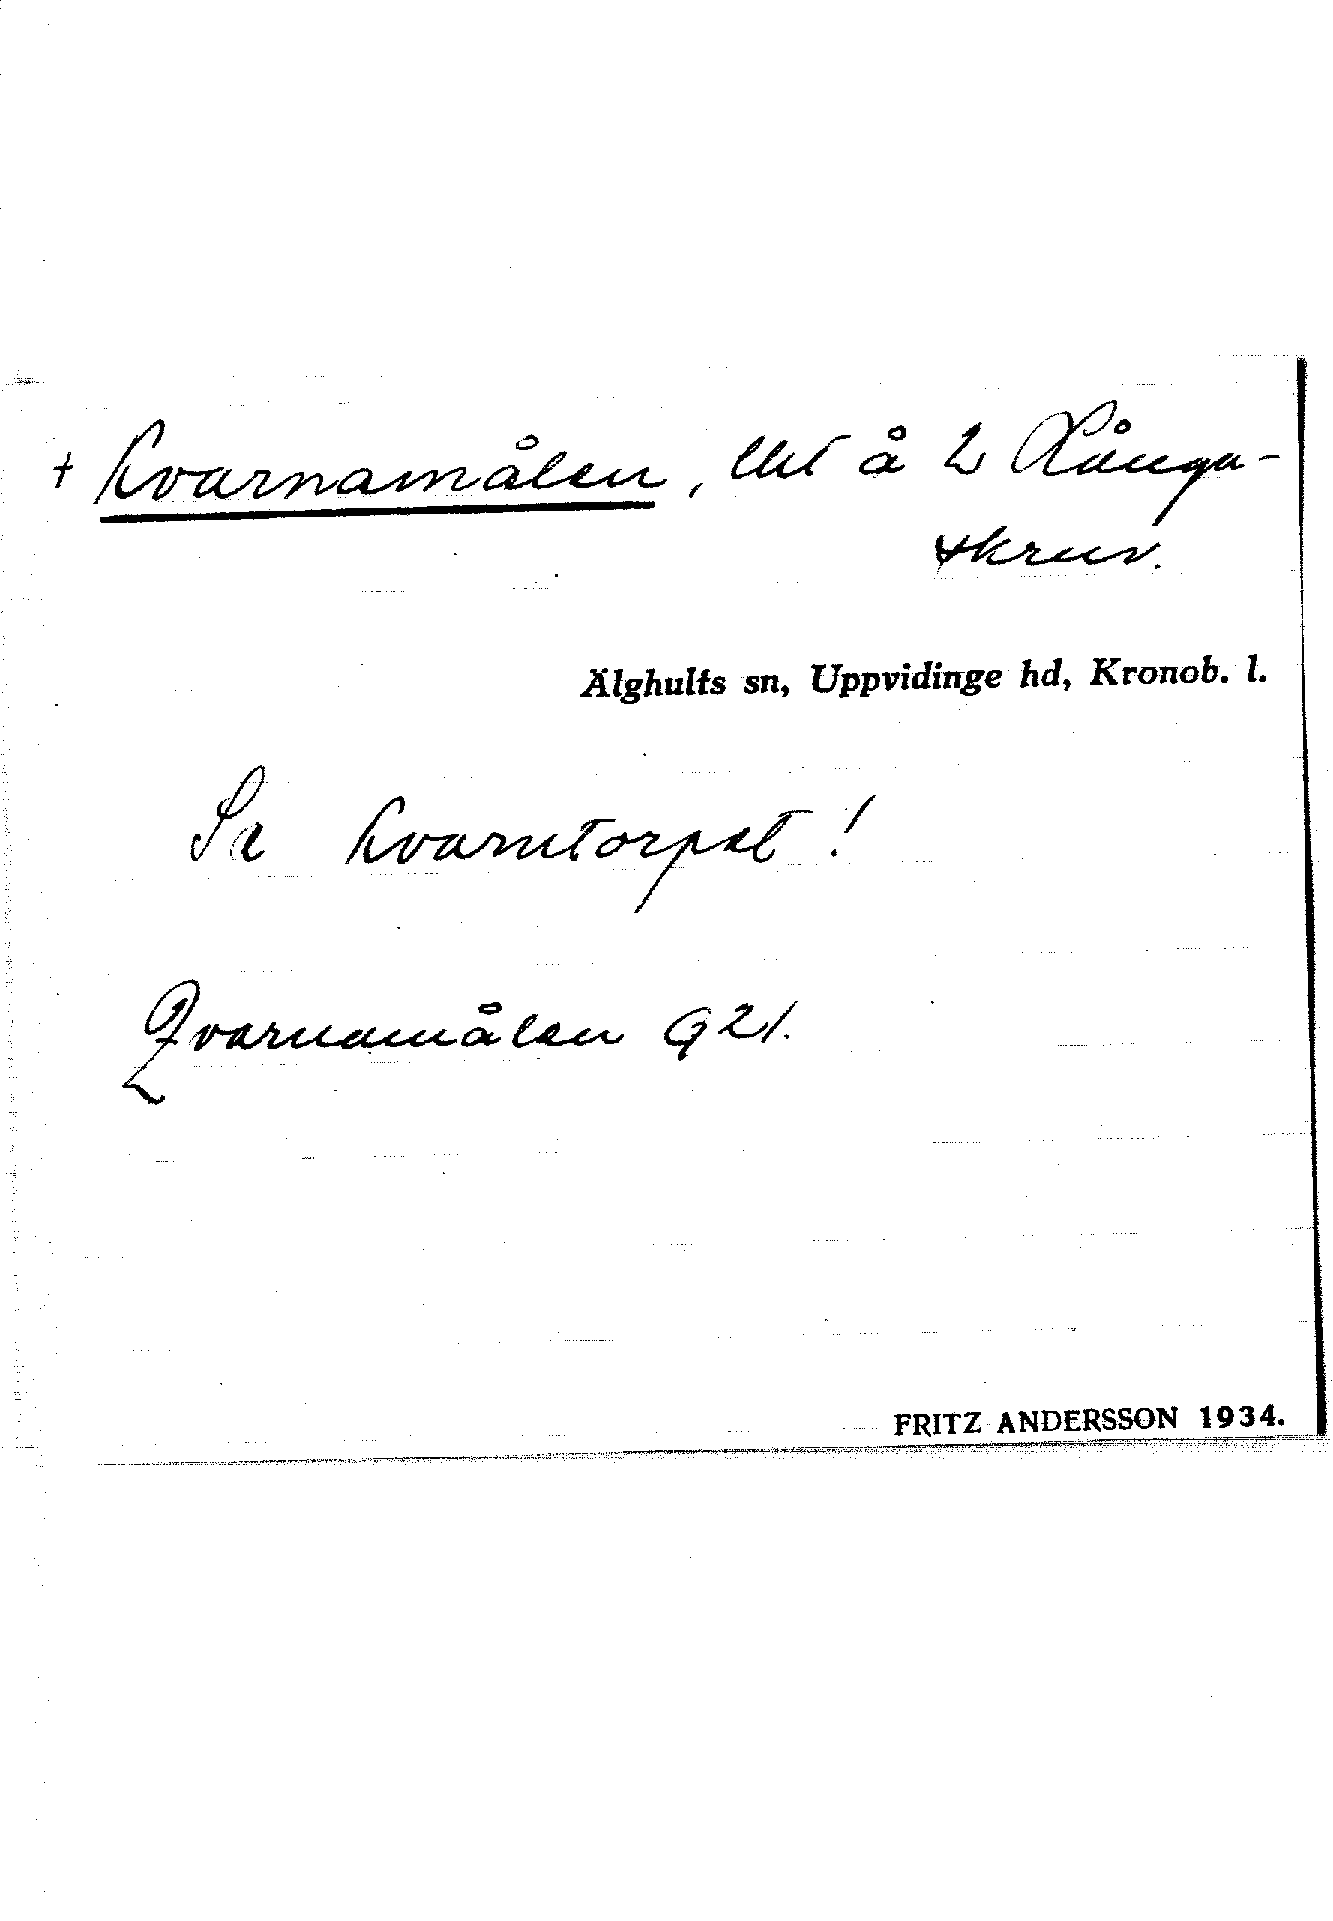 + Kvarnamålen, lht å 2 Rånga-
skruv.
Älghults sn, Uppvidinge hd, Kronob. l.
Se Kvarntorpet!
Qvarnamålen G 21.
FRITZ ANDERSSON 1934.